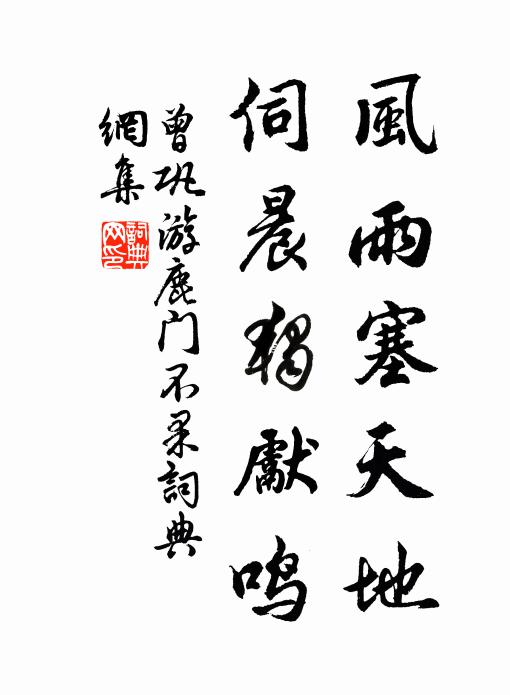 風雨塞天地
伺晨獨獻鸣
曾巩游鹿门不果詞典
網集
詞典网印